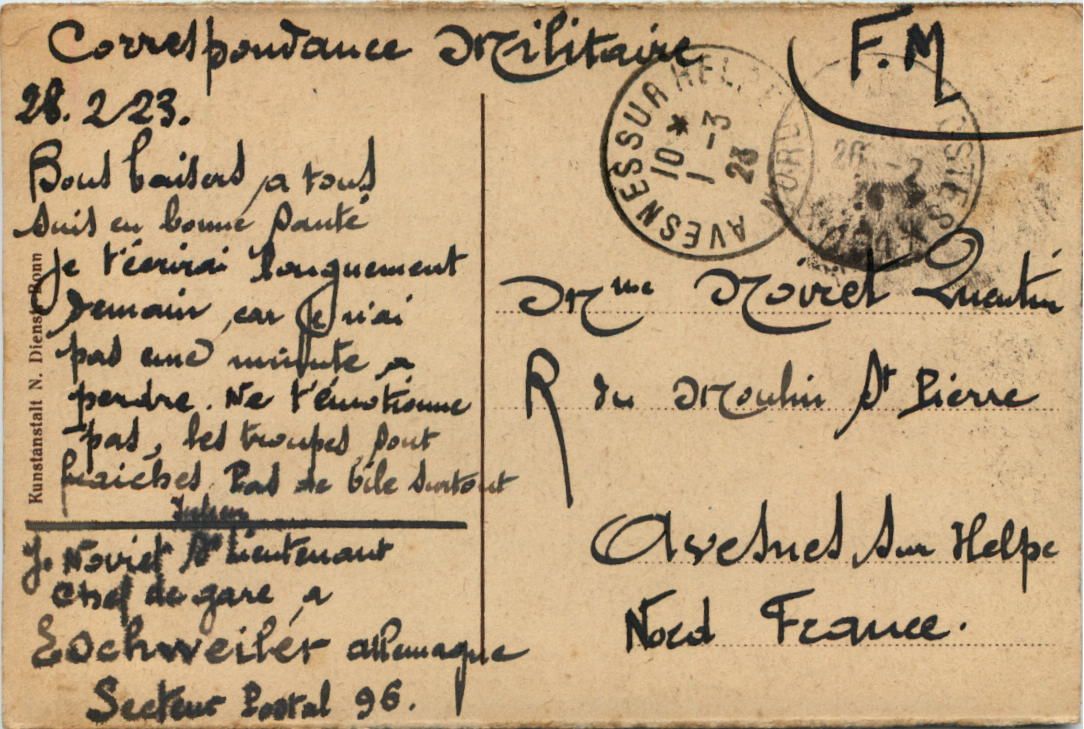 Correspondance Militaire
F.M
28.2.23.
Bons baisers a tous
suis en bonne santé
Je t'écrirai longuement
demain, car je n'ai
pas une minute a
perdre. Ne t'émotionne
pas, les troupes sont
fraiches. Pas de bile surtout
Julien
J. Noviet St Lieutenant
Chef de gare a
Eschweiler allemagne
Secteur Postal 96.
Kunstanstalt N. Dienst, Bonn
AVESNES SUR HELPE
NORD
10 *
1 - 3
23
POSTES
Mme Noviet Quentin
R du Moulin St Pierre
Avesnes sur Helpe
Nord France.